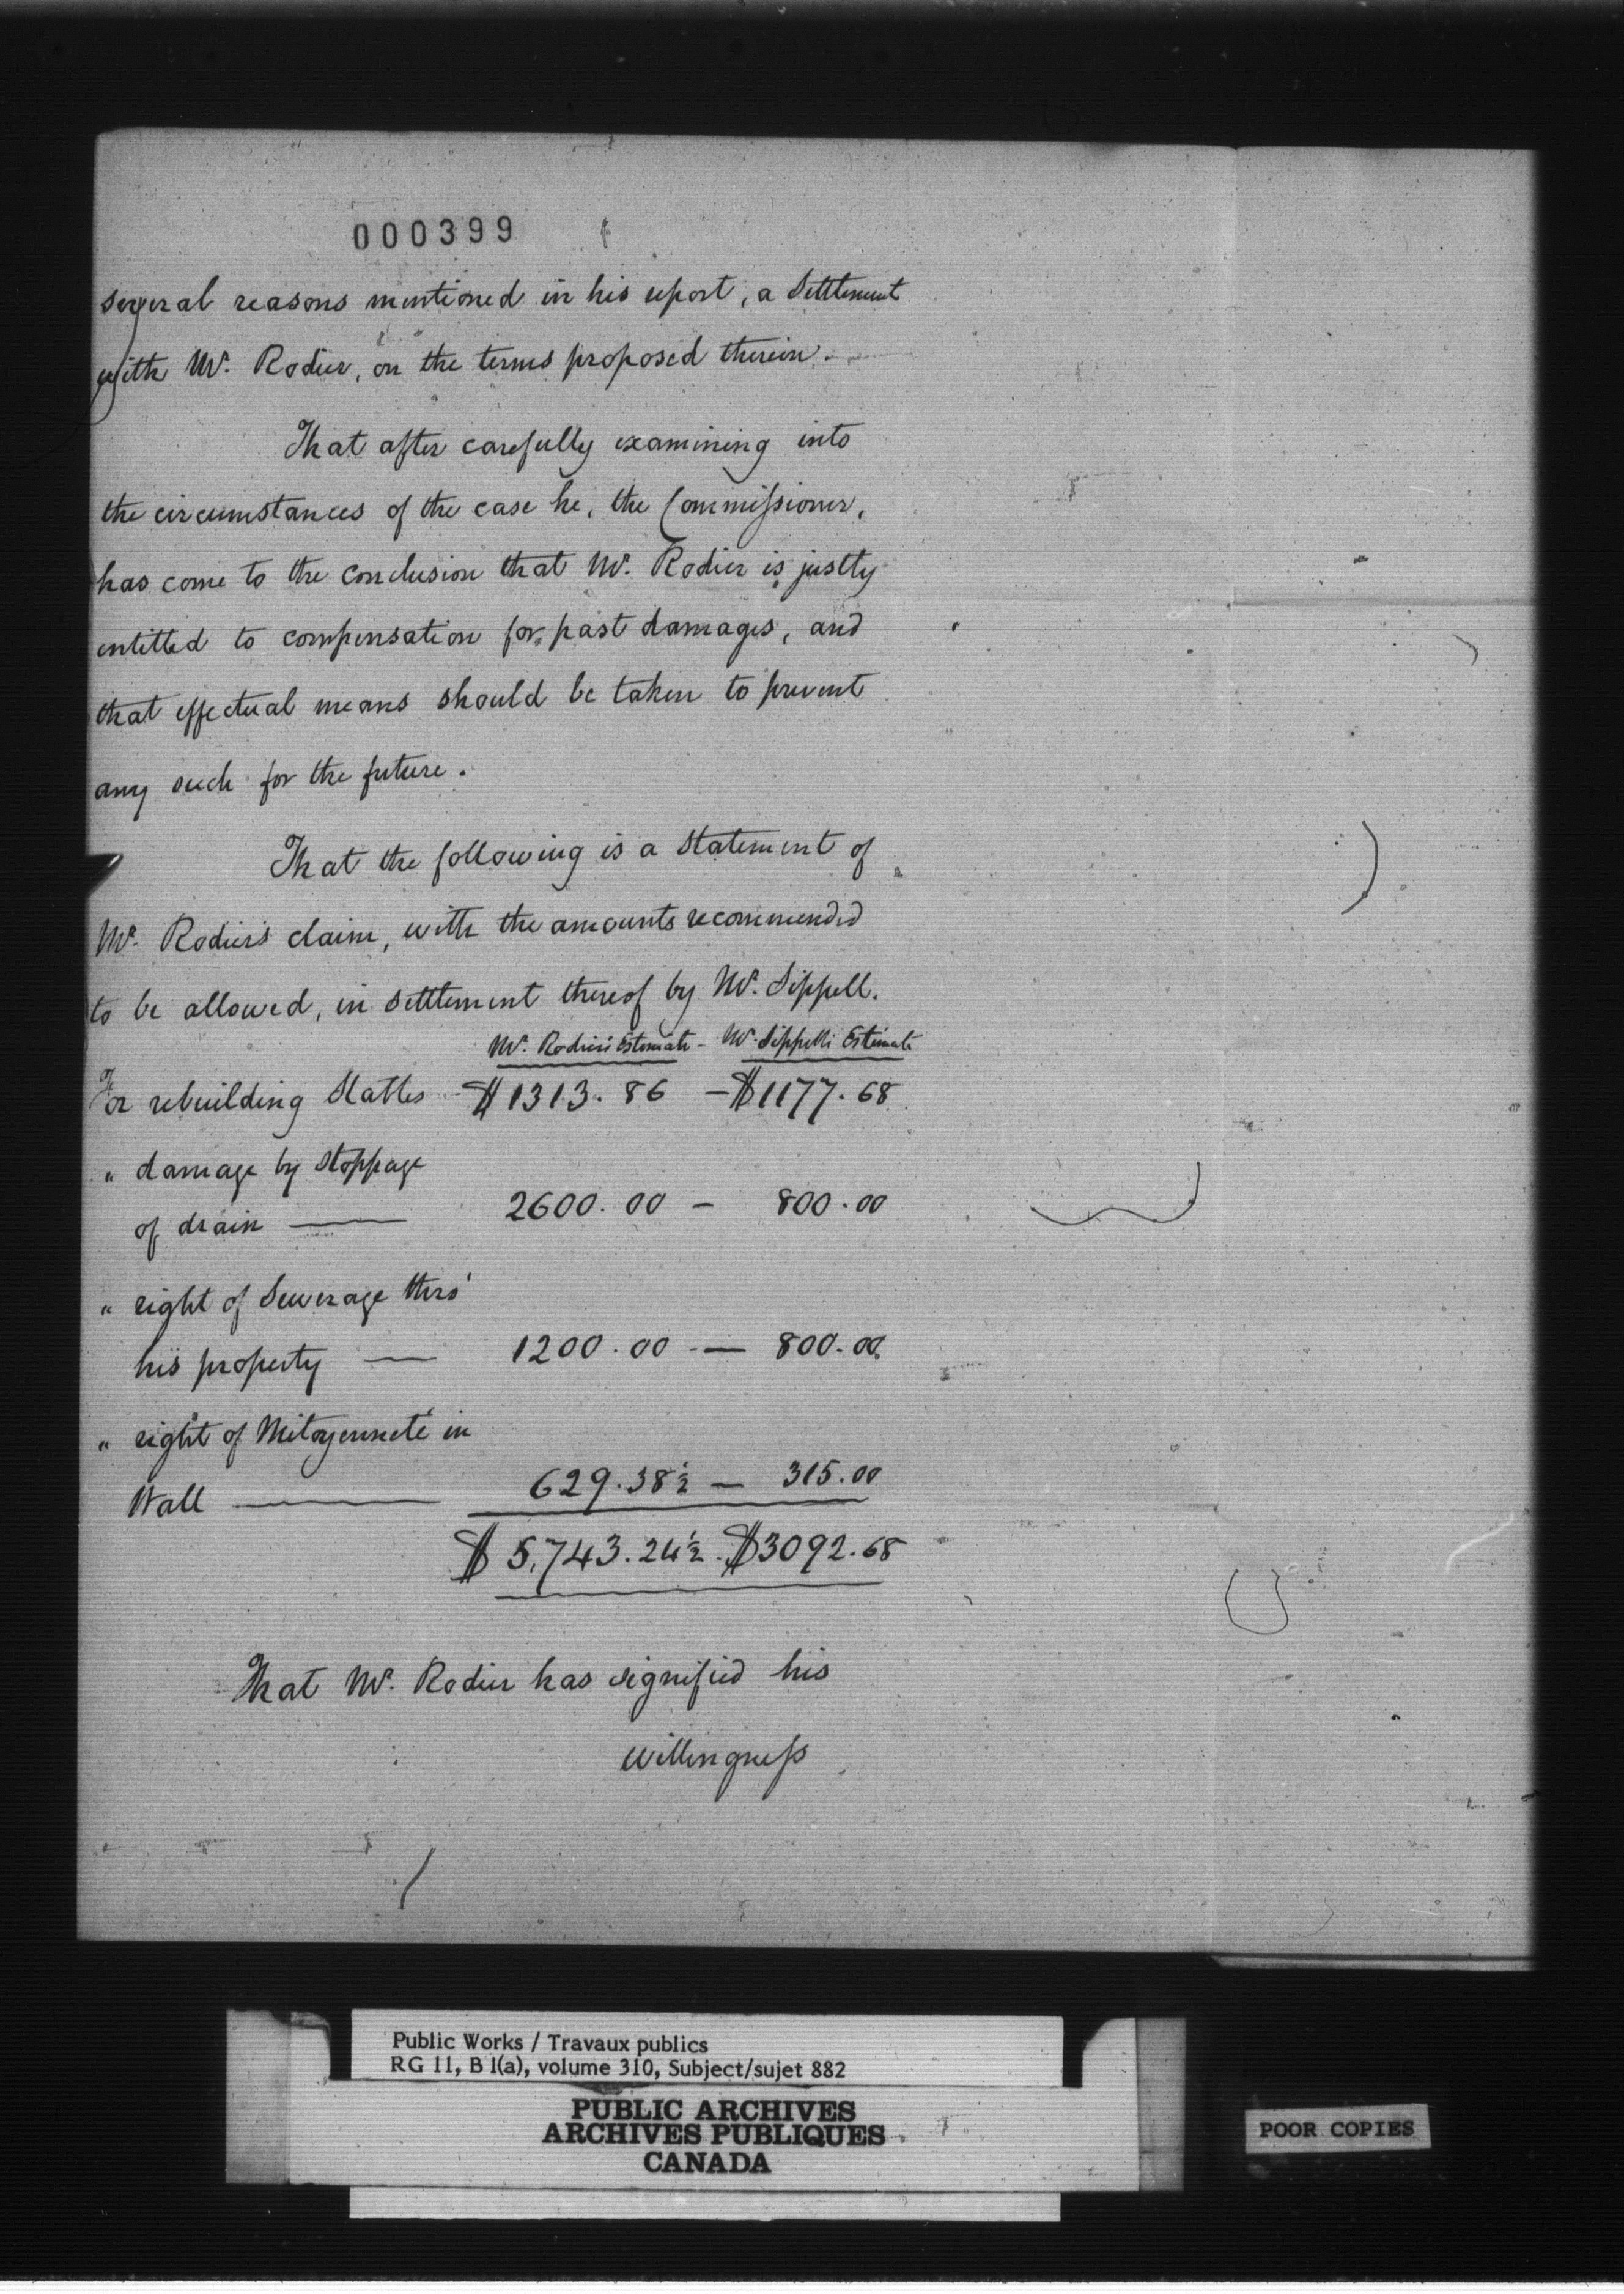 000399
several reasons mentioned in his report, a Settlement
with Mr. Rodier, on the terms proposed therein.
That after carefully examining into
the circumstances of the case he, the Commissioner,
has come to the conclusion that Mr. Rodier is justly
entitled to compensation for past damages, and
that effectual means should be taken to prevent
any such for the future.
That the following is a Statement of
Mr. Rodier's claim, with the amounts recommended
to be allowed, in settlement thereof by Mr. Sippell.
Mr. Rodier's Estimate - Mr. Sippell's Estimate
For rebuilding Stables - $1313.86 - $1177.68
" damage by stoppage
of drain — 2600.00 - 800.00
" right of Sewerage thro'
his property — 1200.00 - — 800.00.
" right of Mitoyenneté in
Wall — 629.38½ — 315.00
$5,743.24½. $3092.68
That Mr. Rodier has signified his
willingness
Public Works / Travaux publics
RG 11, B 1(a), volume 310, Subject/sujet 882
PUBLIC ARCHIVES
ARCHIVES PUBLIQUES
CANADA
POOR COPIES